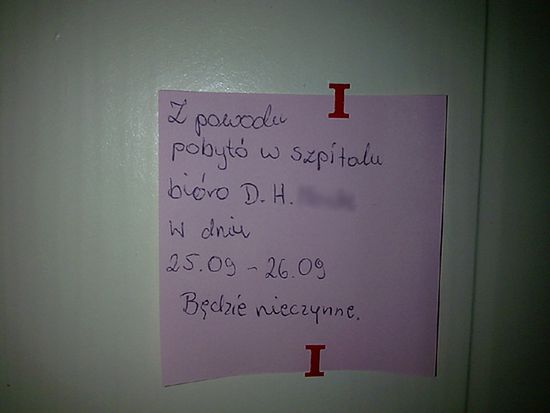 Z powodu
pobytó w szpitalu
bióro D. H.
W dniu
25.09 - 26.09
Będzie nieczynne.